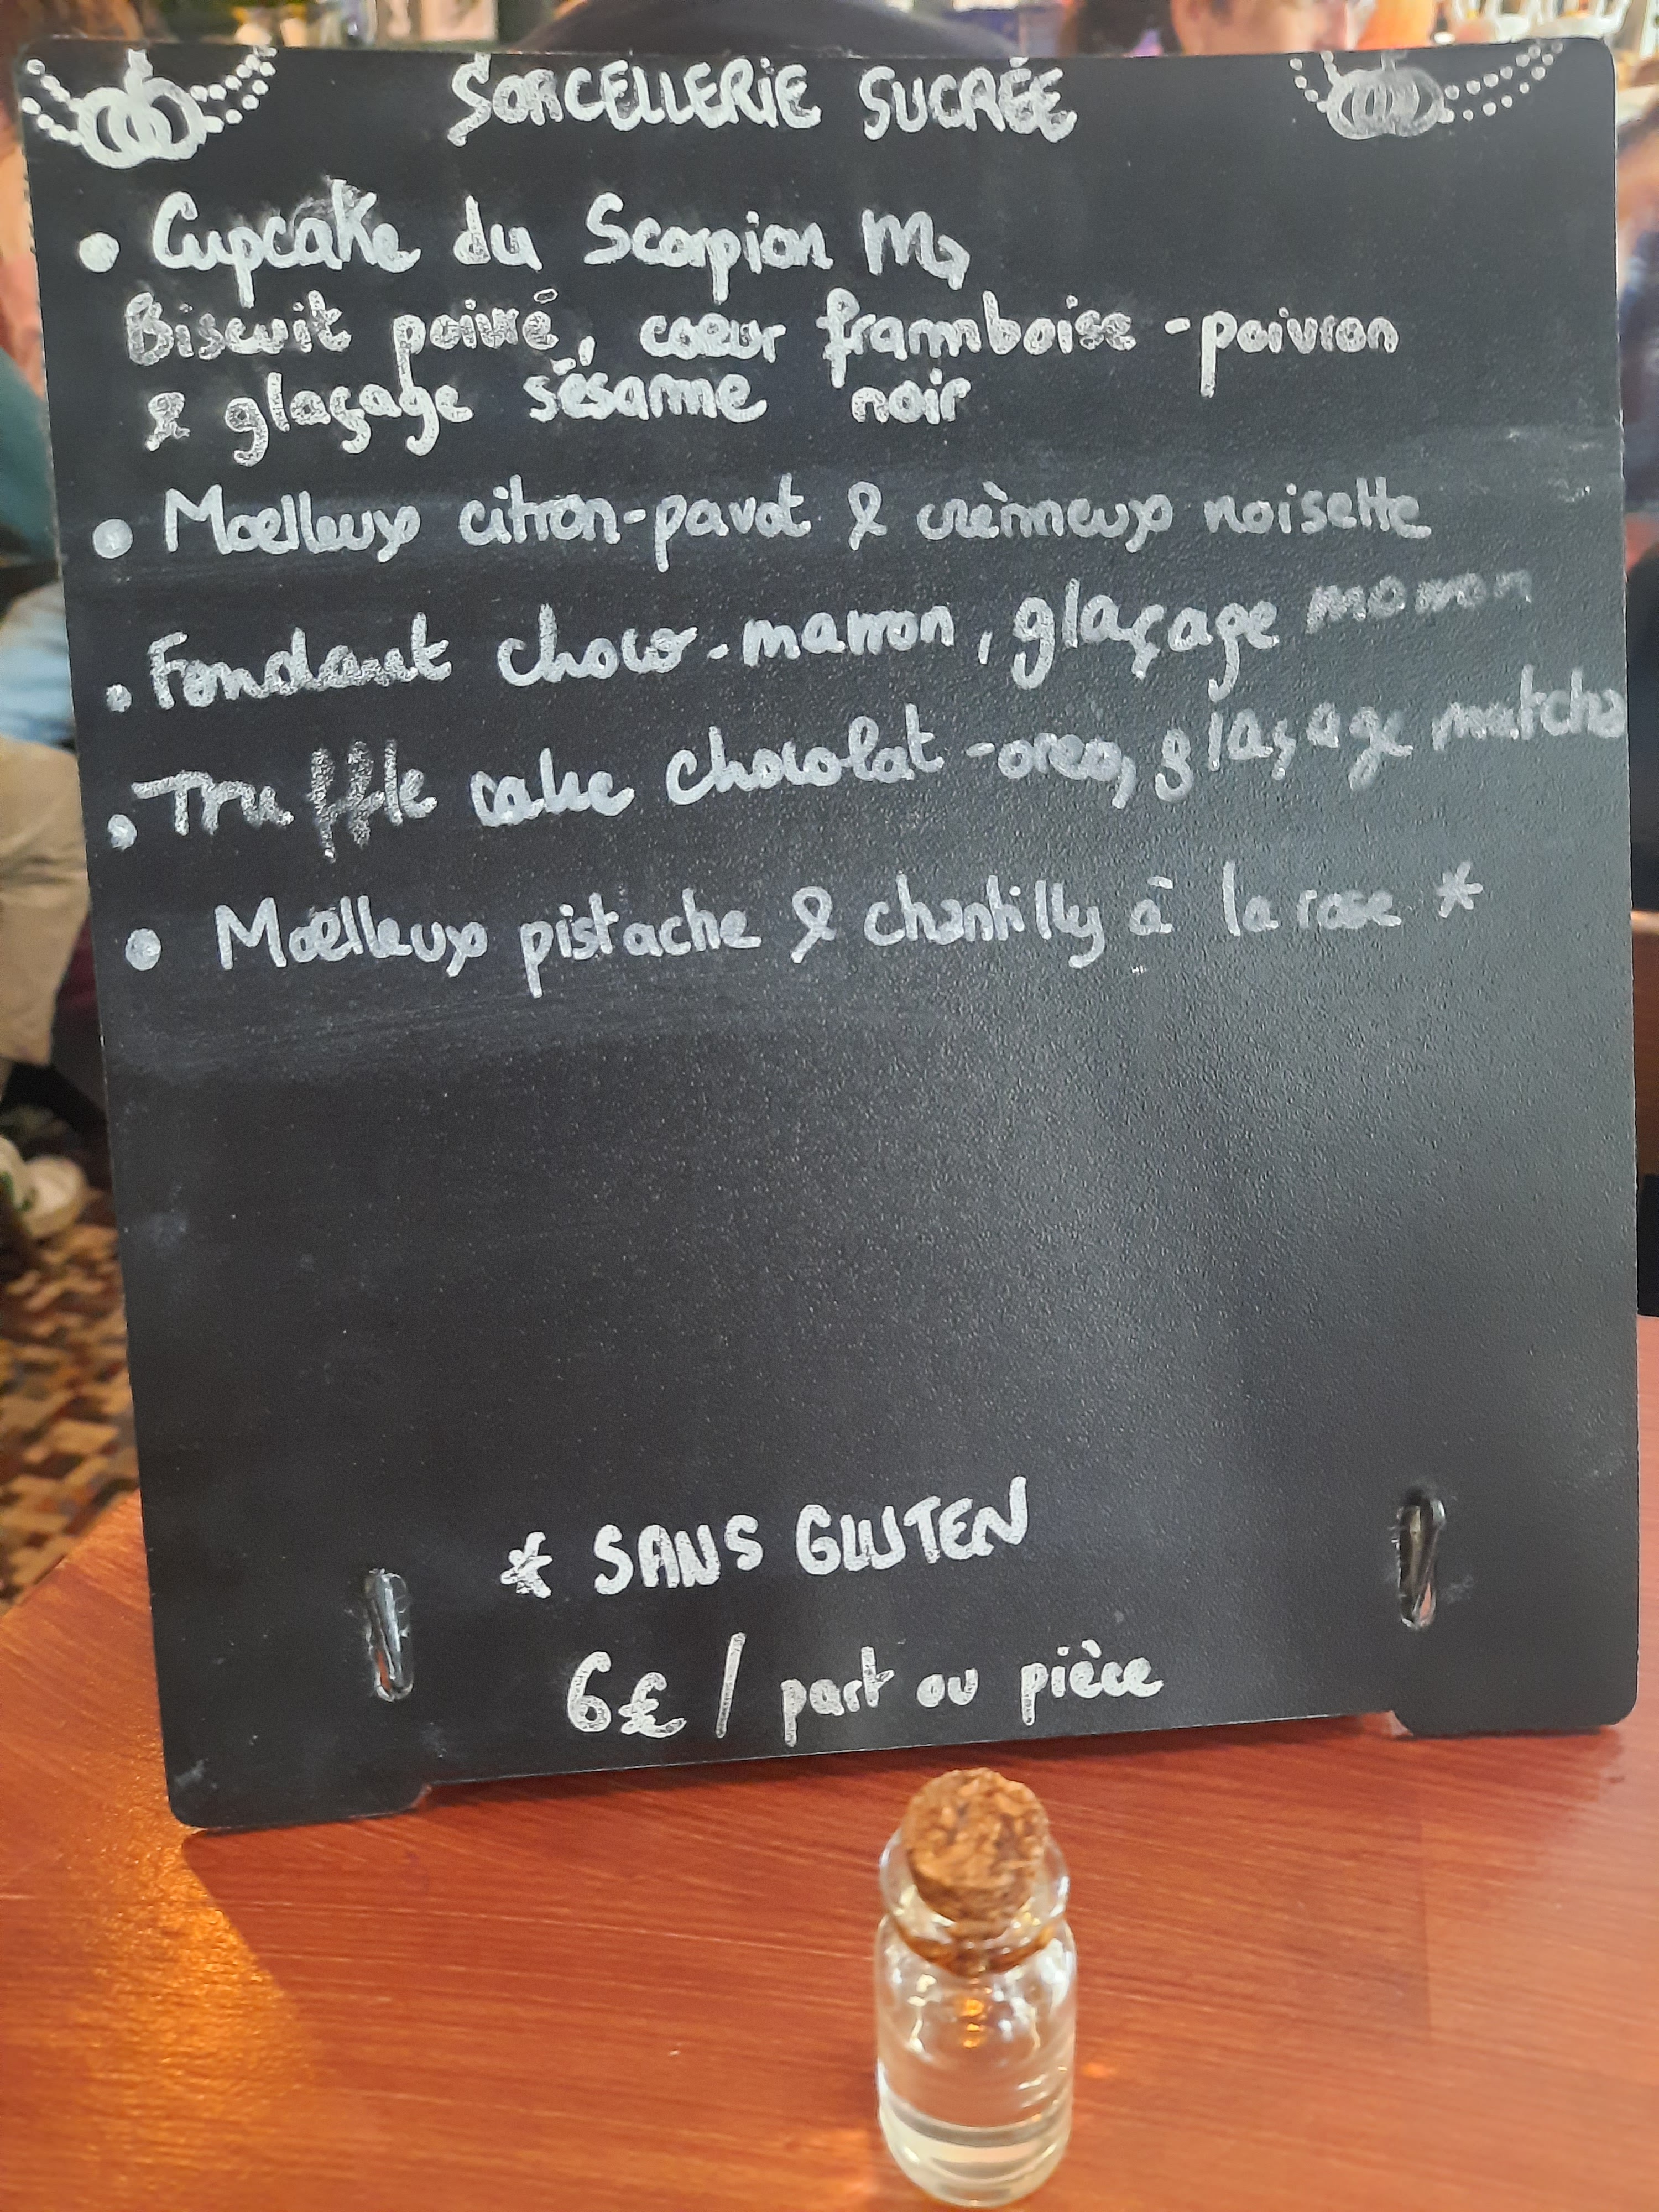 SORCELLERIE SUCRÉE
• Cupcake du Scorpion ♏
Biscuit poivré, coeur framboise-poivron
& glaçage sésame noir
• Moelleux citron-pavot & crèmeux noisette
• Fondant choco-marron, glaçage marron
• Truffle cake chocolat-oreo, glaçage matcha
• Moelleux pistache & chantilly à la rose *
* SANS GLUTEN
6€ / part ou pièce